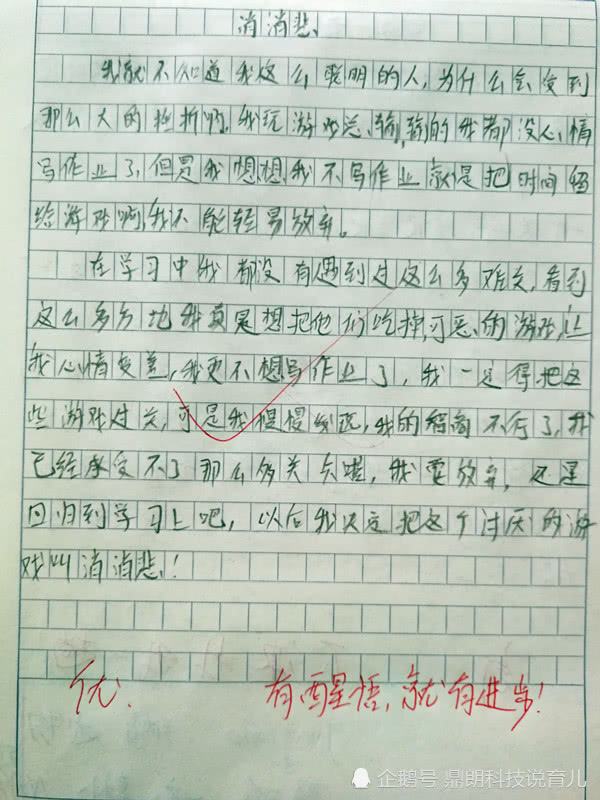 消消悲
我就不知道我这么聪明的人,为什么会受到
那么大的挫折啊,我玩游戏总输,输的我都没心情
写作业了,但是我想想,我不写作业就是把时间留
给游戏啊,我不能轻易放弃。
在学习中我都没有遇到过这么多难关,看到
这么多方地我真是想把他们吃掉,可恶的游戏,让
我心情变差,我更不想写作业了,我一定得把这
些游戏过关,可是我慢慢发现,我的智商不行了,我
已经承受不了那么多关卡啦,我要放弃,还是
回归到学习上吧,以后我决定把这个讨厌的游
戏叫消消悲!
优.
有醒悟,就有进步!
企鹅号 鼎朗科技说育儿